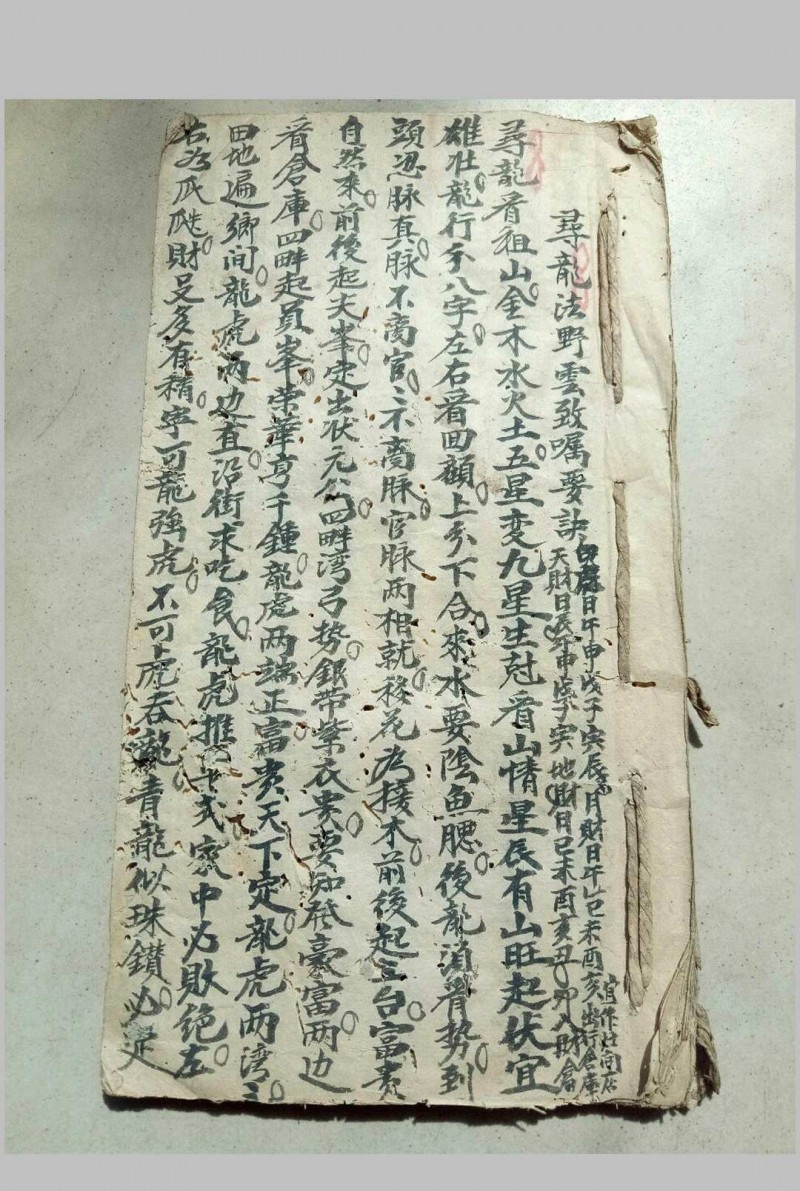 尋龍法野雲致嘱要訣
日午申戌子寅辰 月財日午巳未酉亥出行
天財日辰午申戌子寅 地財日巳未酉亥丑卯入財倉
尋龍看祖山金木水火土五星变九星生尅看山情星辰有山旺起伏宜
雄壮龍行分八字左右看回顧上分下合來水要陰魚腮後龍須看势到
頭忍脉真脉不离官〻不离脉官脉两相就移花为接木前後起三台富貴
自然來前後起天峯定出状元公四畔湾弓势銀带紫衣貴要知發豪富两边
看倉庫四畔起員峯荣華亨千鍾龍虎两端正富贵天下定龍虎两湾〻
田地遍鄉间龍虎两边直沿街求吃食龍虎推 家中必敗绝左
右为瓜瓞財足多有積寧可龍強虎不可虎吞龍青龍似珠鑽必定